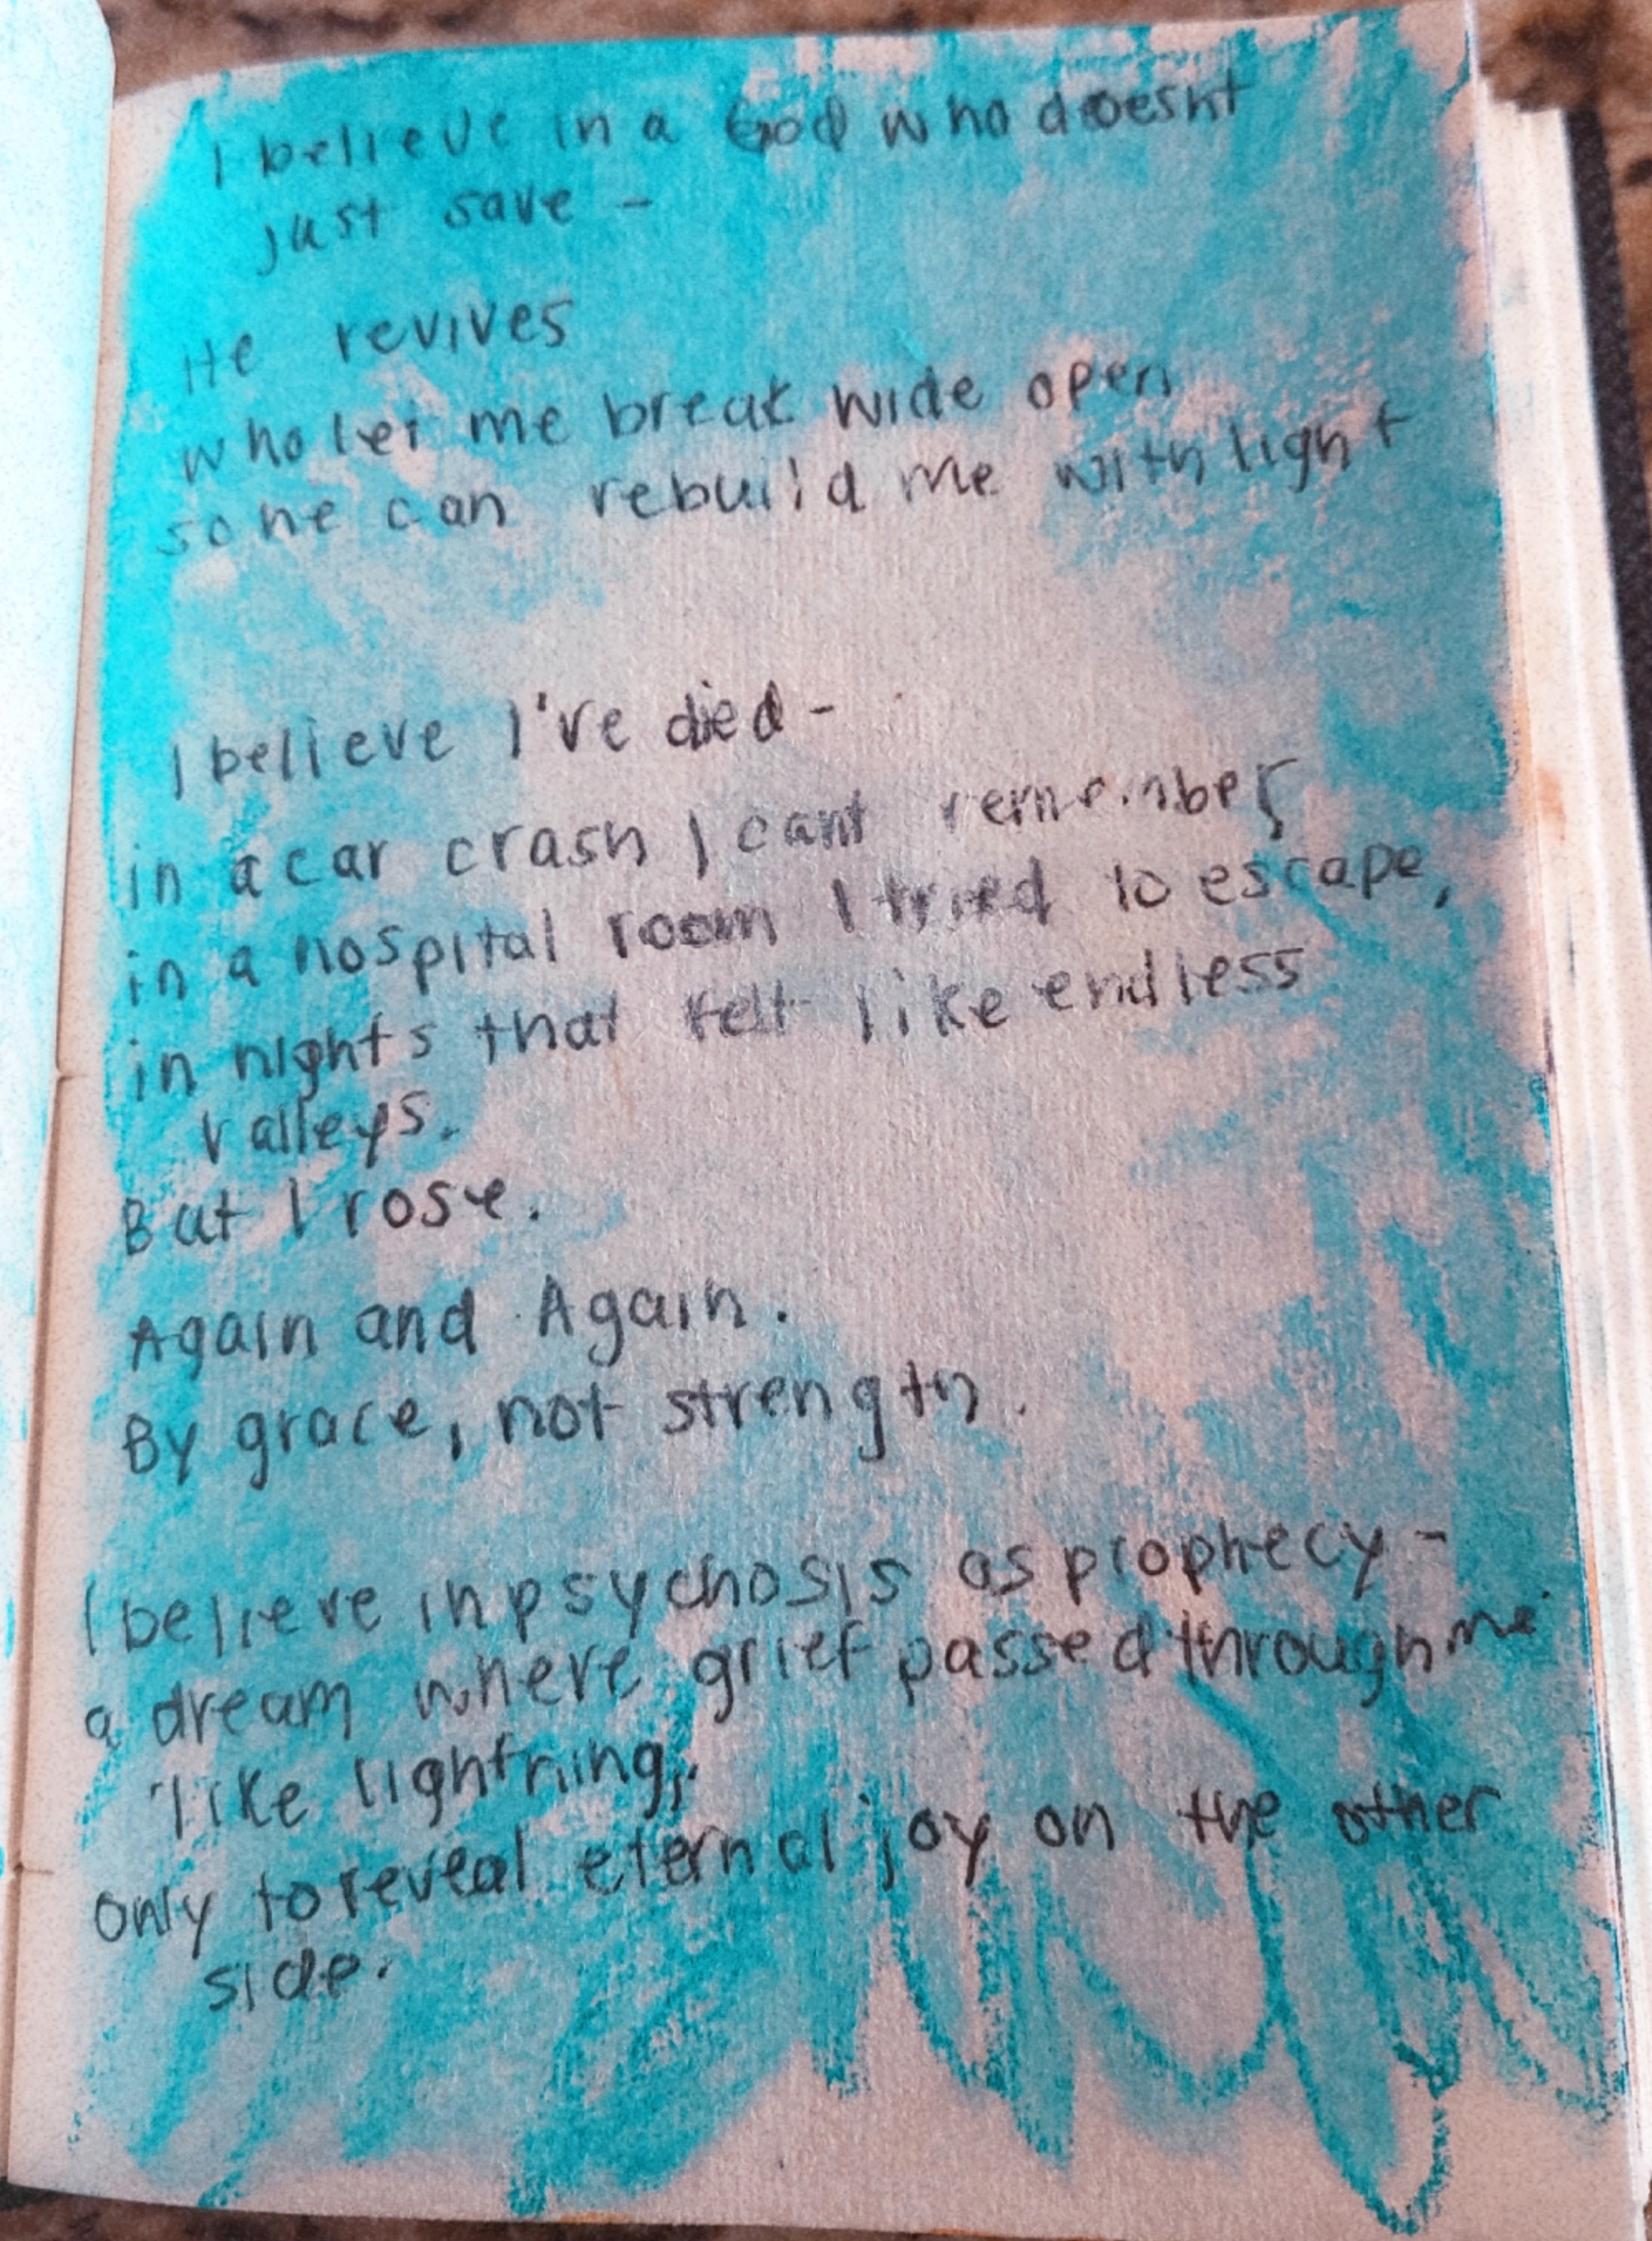 I believe in a God who doesnt
just save -
He revives
who let me break wide open
so he can rebuild me with light
I believe I've died -
in a car crash I cant remember,
in a hospital room I tried to escape,
in nights that felt like endless
valleys.
But I rose.
Again and Again.
By grace, not strength.
I believe in psychosis as prophecy -
a dream where grief passed through me
like lightning,
only to reveal eternal joy on the other
side.